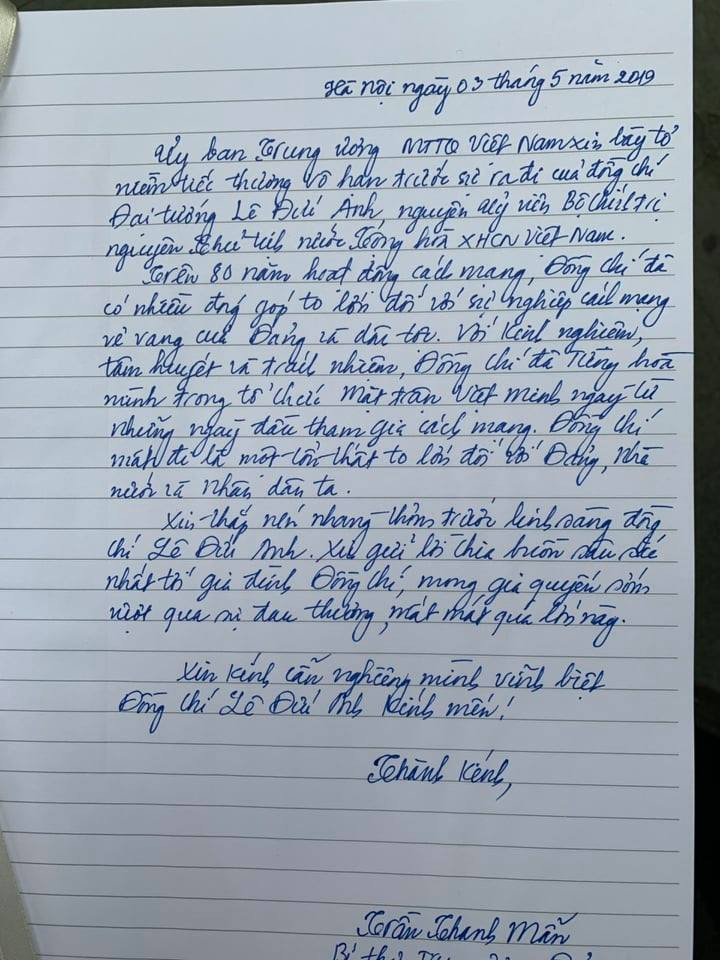 Hà Nội ngày 03 tháng 5 năm 2019
Ủy ban Trung ương MTTQ Việt Nam xin bày tỏ
niềm tiếc thương vô hạn trước sự ra đi của đồng chí
Đại tướng Lê Đức Anh, nguyên Ủy viên Bộ Chính trị
nguyên Chủ tịch nước Cộng hòa XHCN Việt Nam.
Trên 80 năm hoạt động cách mạng, Đồng chí đã
có nhiều đóng góp to lớn đối với sự nghiệp cách mạng
vẻ vang của Đảng và dân tộc. Với kinh nghiệm,
tâm huyết và trách nhiệm, Đồng chí đã từng hòa
mình trong tổ chức Mặt trận Việt Minh ngay từ
những ngày đầu tham gia cách mạng. Đồng chí
mất đi là một tổn thất to lớn đối với Đảng, Nhà
nước và Nhân dân ta.
Xin thắp nén nhang thơm trước linh sàng đồng
chí Lê Đức Anh. Xin gửi lời chia buồn sâu sắc
nhất tới gia đình Đồng chí, mong gia quyến sớm
vượt qua sự đau thương, mất mát quá lớn này.
Xin kính cẩn nghiêng mình vĩnh biệt
Đồng chí Lê Đức Anh kính mến!
Thành kính,
Trần Thanh Mẫn
Bí thư Trung ương